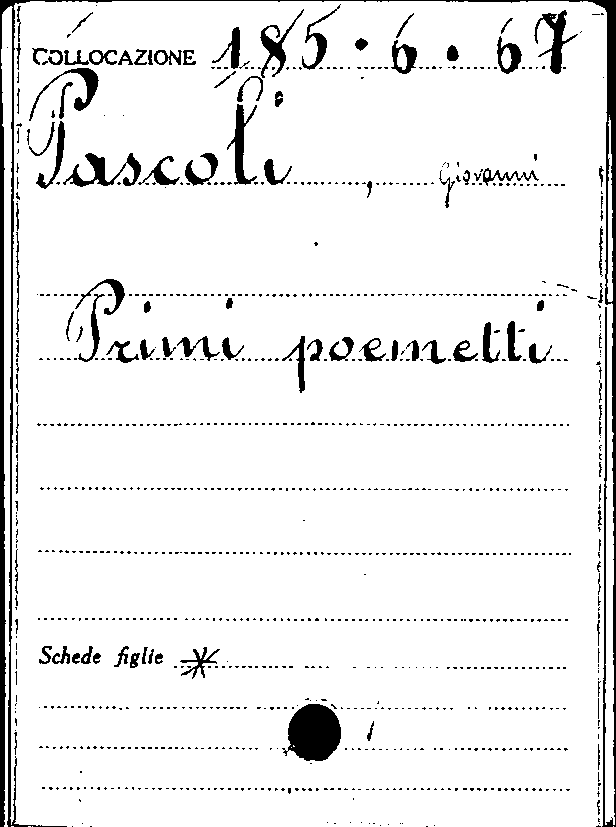 COLLOCAZIONE 185.6.67
Pascoli, Giovanni
Primi poemetti
Schede figlie *